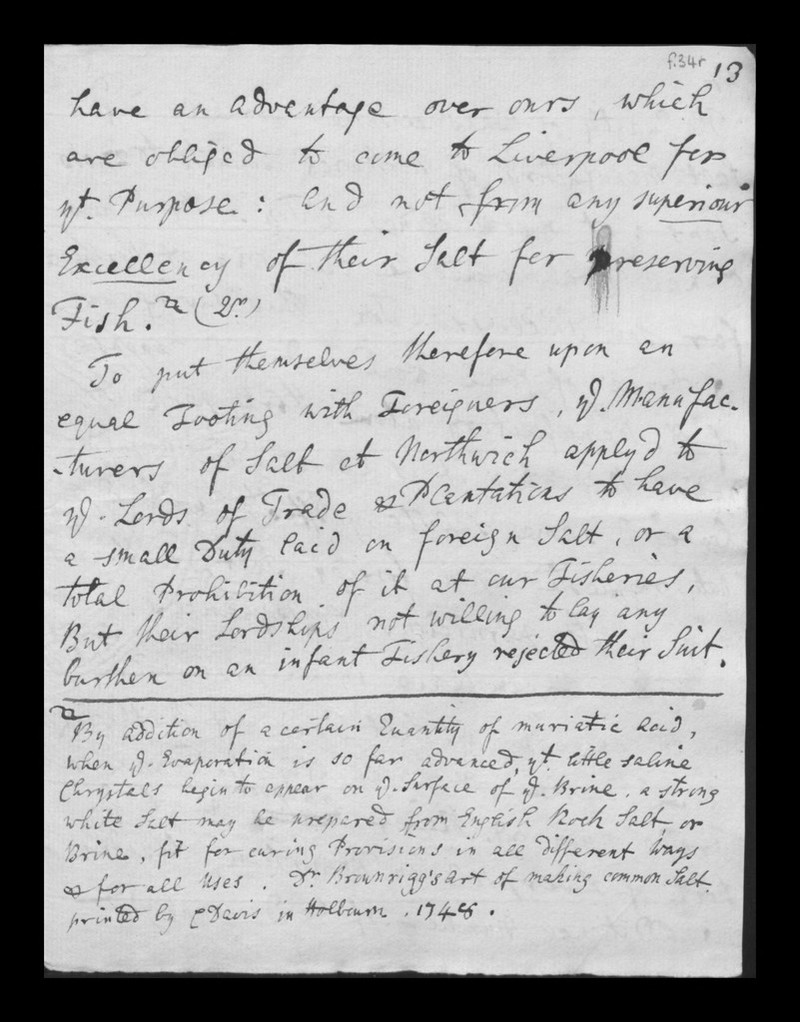 f.34r 13
have an advantage over ours, which
are obliged to come to Liverpool for
yt. Purpose: and not from any superiour
Excellency of their Salt for preserving
Fish. a (2r.)
To put themselves therefore upon an
equal Footing with Foreigners, ye. Manufac-
-turers of Salt at Northwich apply'd to
ye. Lords of Trade & Plantations to have
a small Duty laid on foreign Salt, or a
total Prohibition of it at our Fisheries,
But their Lordships not willing to lay any
burthen on an infant Fishery rejected their Suit.
a By addition of a certain Quantity of muriatic acid,
when ye. Evaporation is so far advanced, yt. little saline
Chrystals begin to appear on ye. Surface of ye. Brine, a strong
white Salt may be prepared from English Rock Salt, or
Brine, fit for curing Provisions in all different Ways
& for all Uses. Dr. Brownrigg's art of making common Salt.
printed by C Davis in Holbourn. 1748.